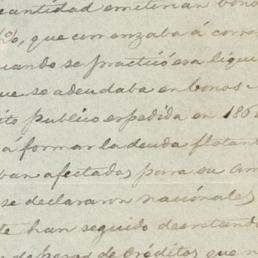 cantidad emitirian bonos
%, que comenzaba á corre
uando se practicó esa liqui
ue se adeudaba en bonos
ito publico expedida en 186
á formar la deuda flotant
ban afectados para su am
se declararon nacionales
te han seguido decretando
de pagas de Créditos que n